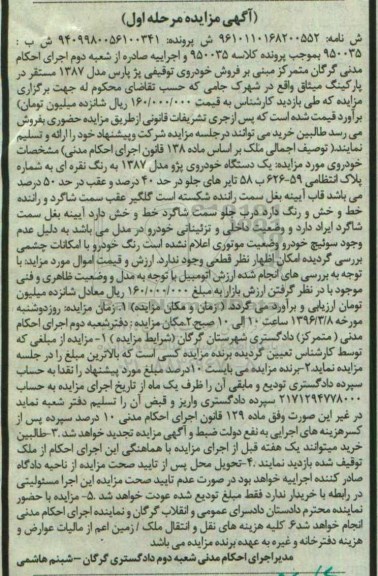 (آگهی مزایده مرحله اول)
ش نامه: ۹۶۱۰۱۱۰۱۶۸۲۰۰۵۵۲ ش پرونده: ۹۴۰۹۹۸۰۰۵۶۱۰۰۳۴۱ ش ب :
۹۵۰۰۳۵ بموجب پرونده کلاسه ۹۵۰۰۳۵ و اجراییه صادره از شعبه دوم اجرای احکام
مدنی گرگان متمرکز مبنی بر فروش خودروی توقیفی پژ پارس مدل ۱۳۸۷ مستقر در
پارکینگ میثاق واقع در شهرک جامی که حسب تقاضای محکوم له جهت برگزاری
مزایده که طی بازدید کارشناس به قیمت ۱۶۰/۰۰۰/۰۰۰ ریال شانزده میلیون تومان)
برآورد قیمت شده است که پس ازجری تشریفات قانونی ازطریق مزایده حضوری بفروش
می رسد طالبین خرید می توانند درجلسه مزایده شرکت وپیشنهاد خود را ارائه و تسلیم
نمایند( توصیف اجمالی ملک بر اساس ماده ۱۳۸ قانون اجرای احکام مدنی) مشخصات
خودروی مورد مزایده: یک دستگاه خودروی پژو مدل ۱۳۸۷ به رنگ نقره ای به شماره
پلاک انتظامی ۵۹-۶۲۶ ب ۵۸ تایر های جلو در حد ۴۰ درصد و عقب در حد ۵۰ درصد
می باشد قاب آیینه بغل سمت راننده شکسته است گلگیر عقب سمت شاگرد و راننده
خط و خش و رنگ دارد درب جلو سمت شاگرد خط و خش دارد آیینه بغل سمت
شاگرد ایراد دارد و وضعیت داخلی و تزئیناتی خودرو در مدل می باشد به دلیل عدم
وجود سوئیچ خودرو وضعیت موتوری اعلام نشده است رنگ خودرو با امکانات چشمی
بررسی گردیده امکان اظهار نظر قطعی وجود ندارد. ارزش و قیمت اموال مورد مزاید: با
توجه به بررسی های انجام شده ارزش اتومبیل با توجه به مدل و وضعیت ظاهری و فنی
موجود با در نظر گرفتن ارزش بازار به مبلغ ۱۶۰/۰۰۰/۰۰۰ ریال معادل شانزده میلیون
تومان ارزیابی و برآورد می گردد. ( زمان و مکان مزایده) ۱. زمان مزایده: روزدوشنبه
مورخه ۱۳۹۶/۳/۸ ساعت ۱۰ الی ۱۰ صبح۲.مکان مزایده :دفترشعبه دوم اجرای احکام
مدنی ( متمرکز) دادگستری شهرستان گرگان (شرایط مزایده ) ۱- مزایده از مبلغی که
توسط کارشناس تعیین گردیده برنده مزایده کسی است که بالاترین مبلغ را در جلسه
مزایده نماید۲-برنده مزایده می بایست ۱۰درصد مبلغ مورد پیشنهاد را نقدا به حساب
سپرده دادگستری تودیع و مابقی آن را ظرف یک ماه از تاریخ اجرای مزایده به حساب
۲۱۷۱۲۹۴۷۷۸۰۰۰ سپرده دادگستری واریز و قبض آن را تسلیم دفتر شعبه نماید
در غیر این صورت وفق ماده ۱۲۹ قانون اجرای احکام مدنی ۱۰ درصد سپرده پس از
کسرهزینه های اجرایی به نفع دولت ضبط و آگهی مزایده تجدید خواهد شد. ۳-طالبین
خرید میتوانند یک هفته قبل از اجرای مزایده با هماهنگی این اجرای احکام از ملک
توقیف شده بازدید نمایند .۴-تحویل محل پس از تایید صحت مزایده از ناحیه دادگاه
صادر کننده اجراییه خواهد بود در صورت عدم تایید صحت مزایده این اجرا مسئولیتی
در رابطه با خریدار ندارد فقط مبلغ تودیع شده عودت خواهد شد .۵- مزایده با حضور
نماینده محترم دادستان دادسرای عمومی و انقلاب گرگان و نماینده اجرای احکام مدنی
انجام خواهد شد۶. کلیه هزینه های نقل و انتقال ملک / زمین اعم از مالیات عوارض و
هزینه دفترخانه و غیره به عهده برنده مزایده می باشد
مدیراجرای احکام مدنی شعبه دوم دادگستری گرگان –شبنم هاشمی